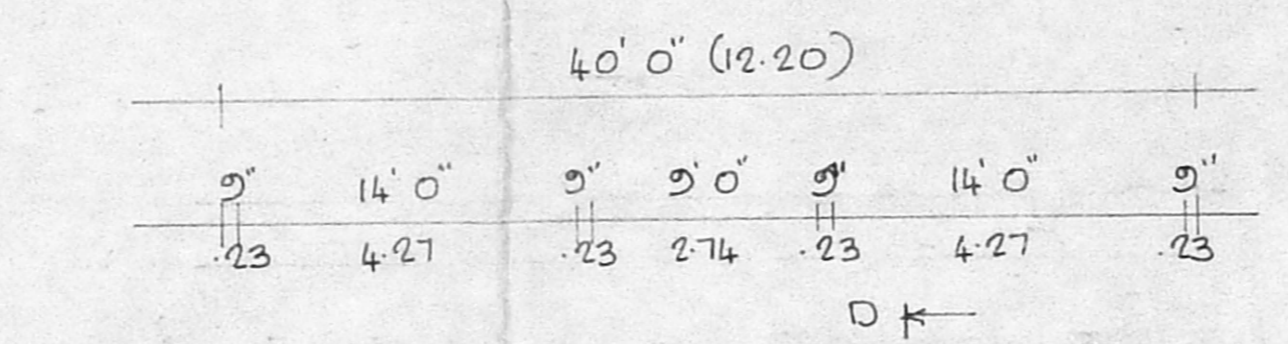 40' 0" (12.20)
9" 14' 0" 9" 9' 0" 9" 14' 0" 9"
.23 4.27 .23 2.74 .23 4.27 .23
D